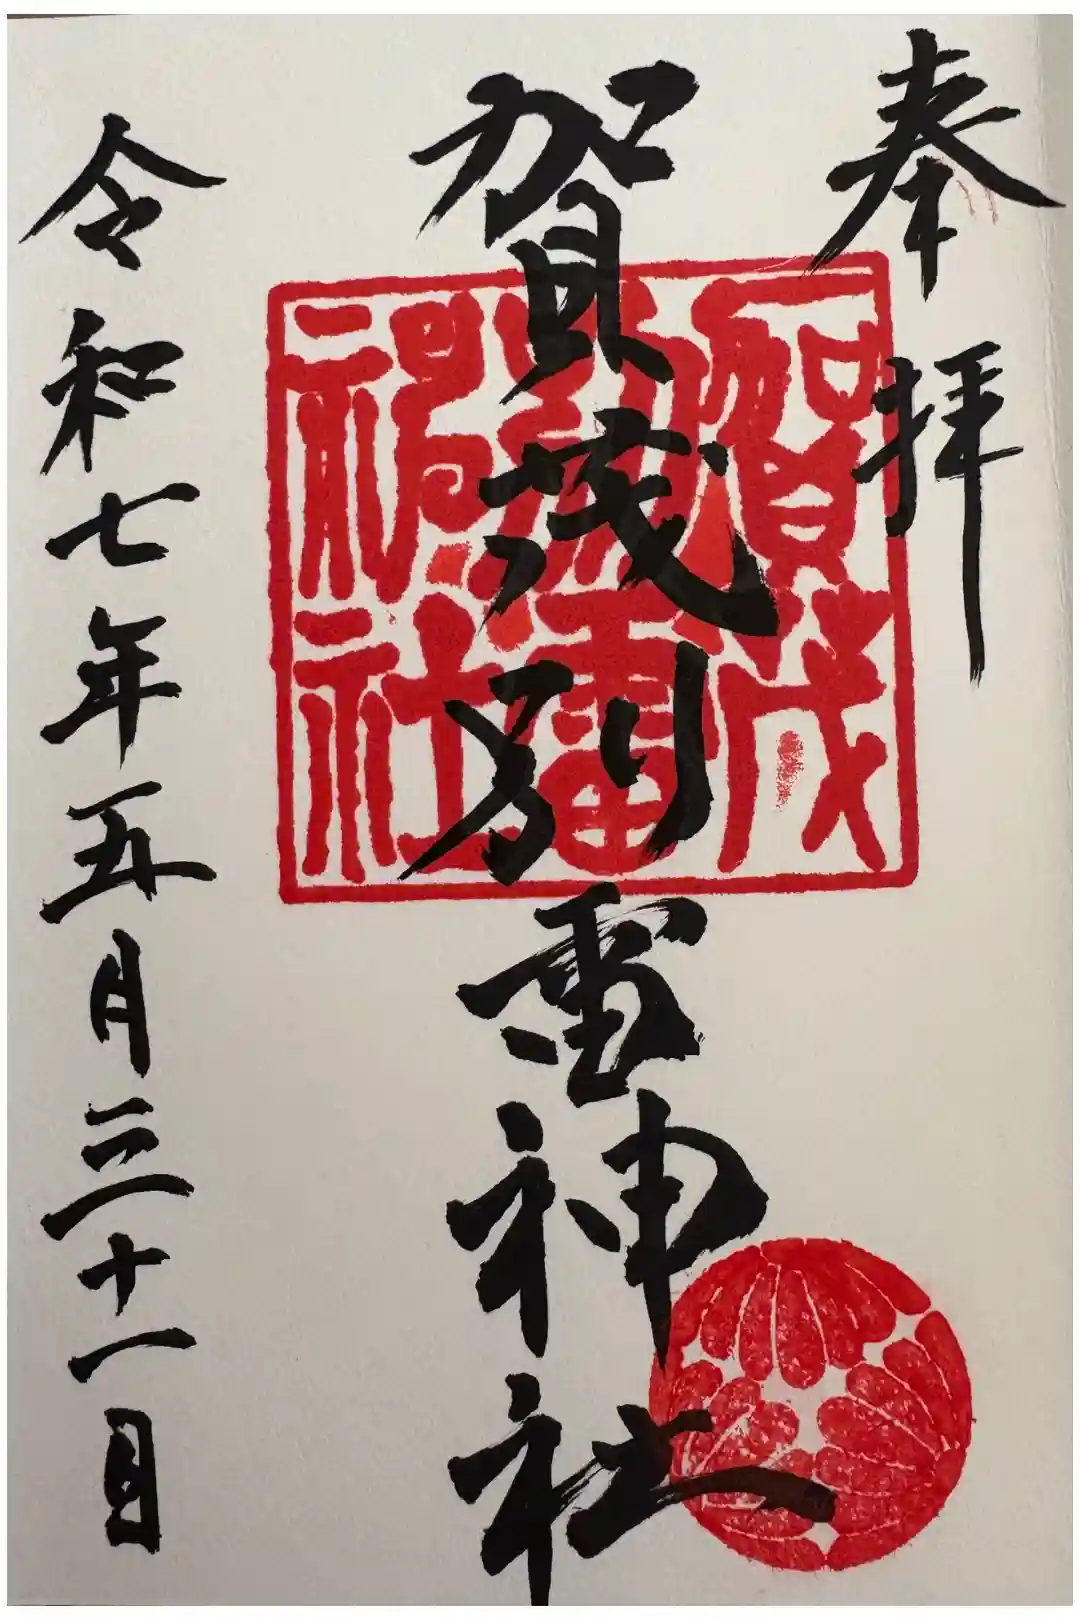 奉拝
賀茂別雷神社
賀茂
別雷
神社
令和七年五月三十一日